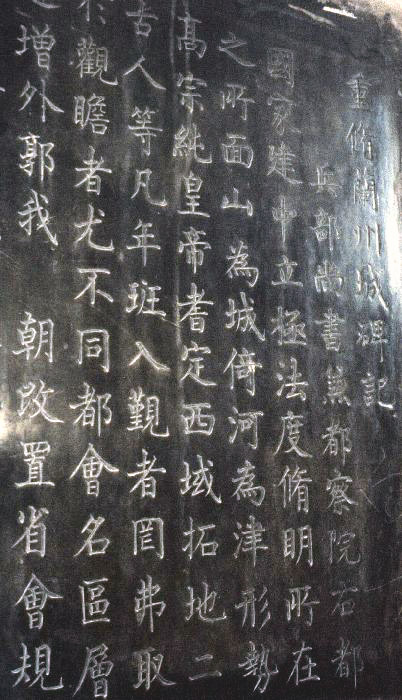 重脩蘭州城碑記
兵部尚書兼都察院右都
國家建中立極法度脩明所在
之所面山為城倚河為津形勢
高宗純皇帝耆定西域拓地二
古人等凡年班入覲者罔弗取
觀瞻者尤不同都會名區層
增外郭我 朝改置省會規